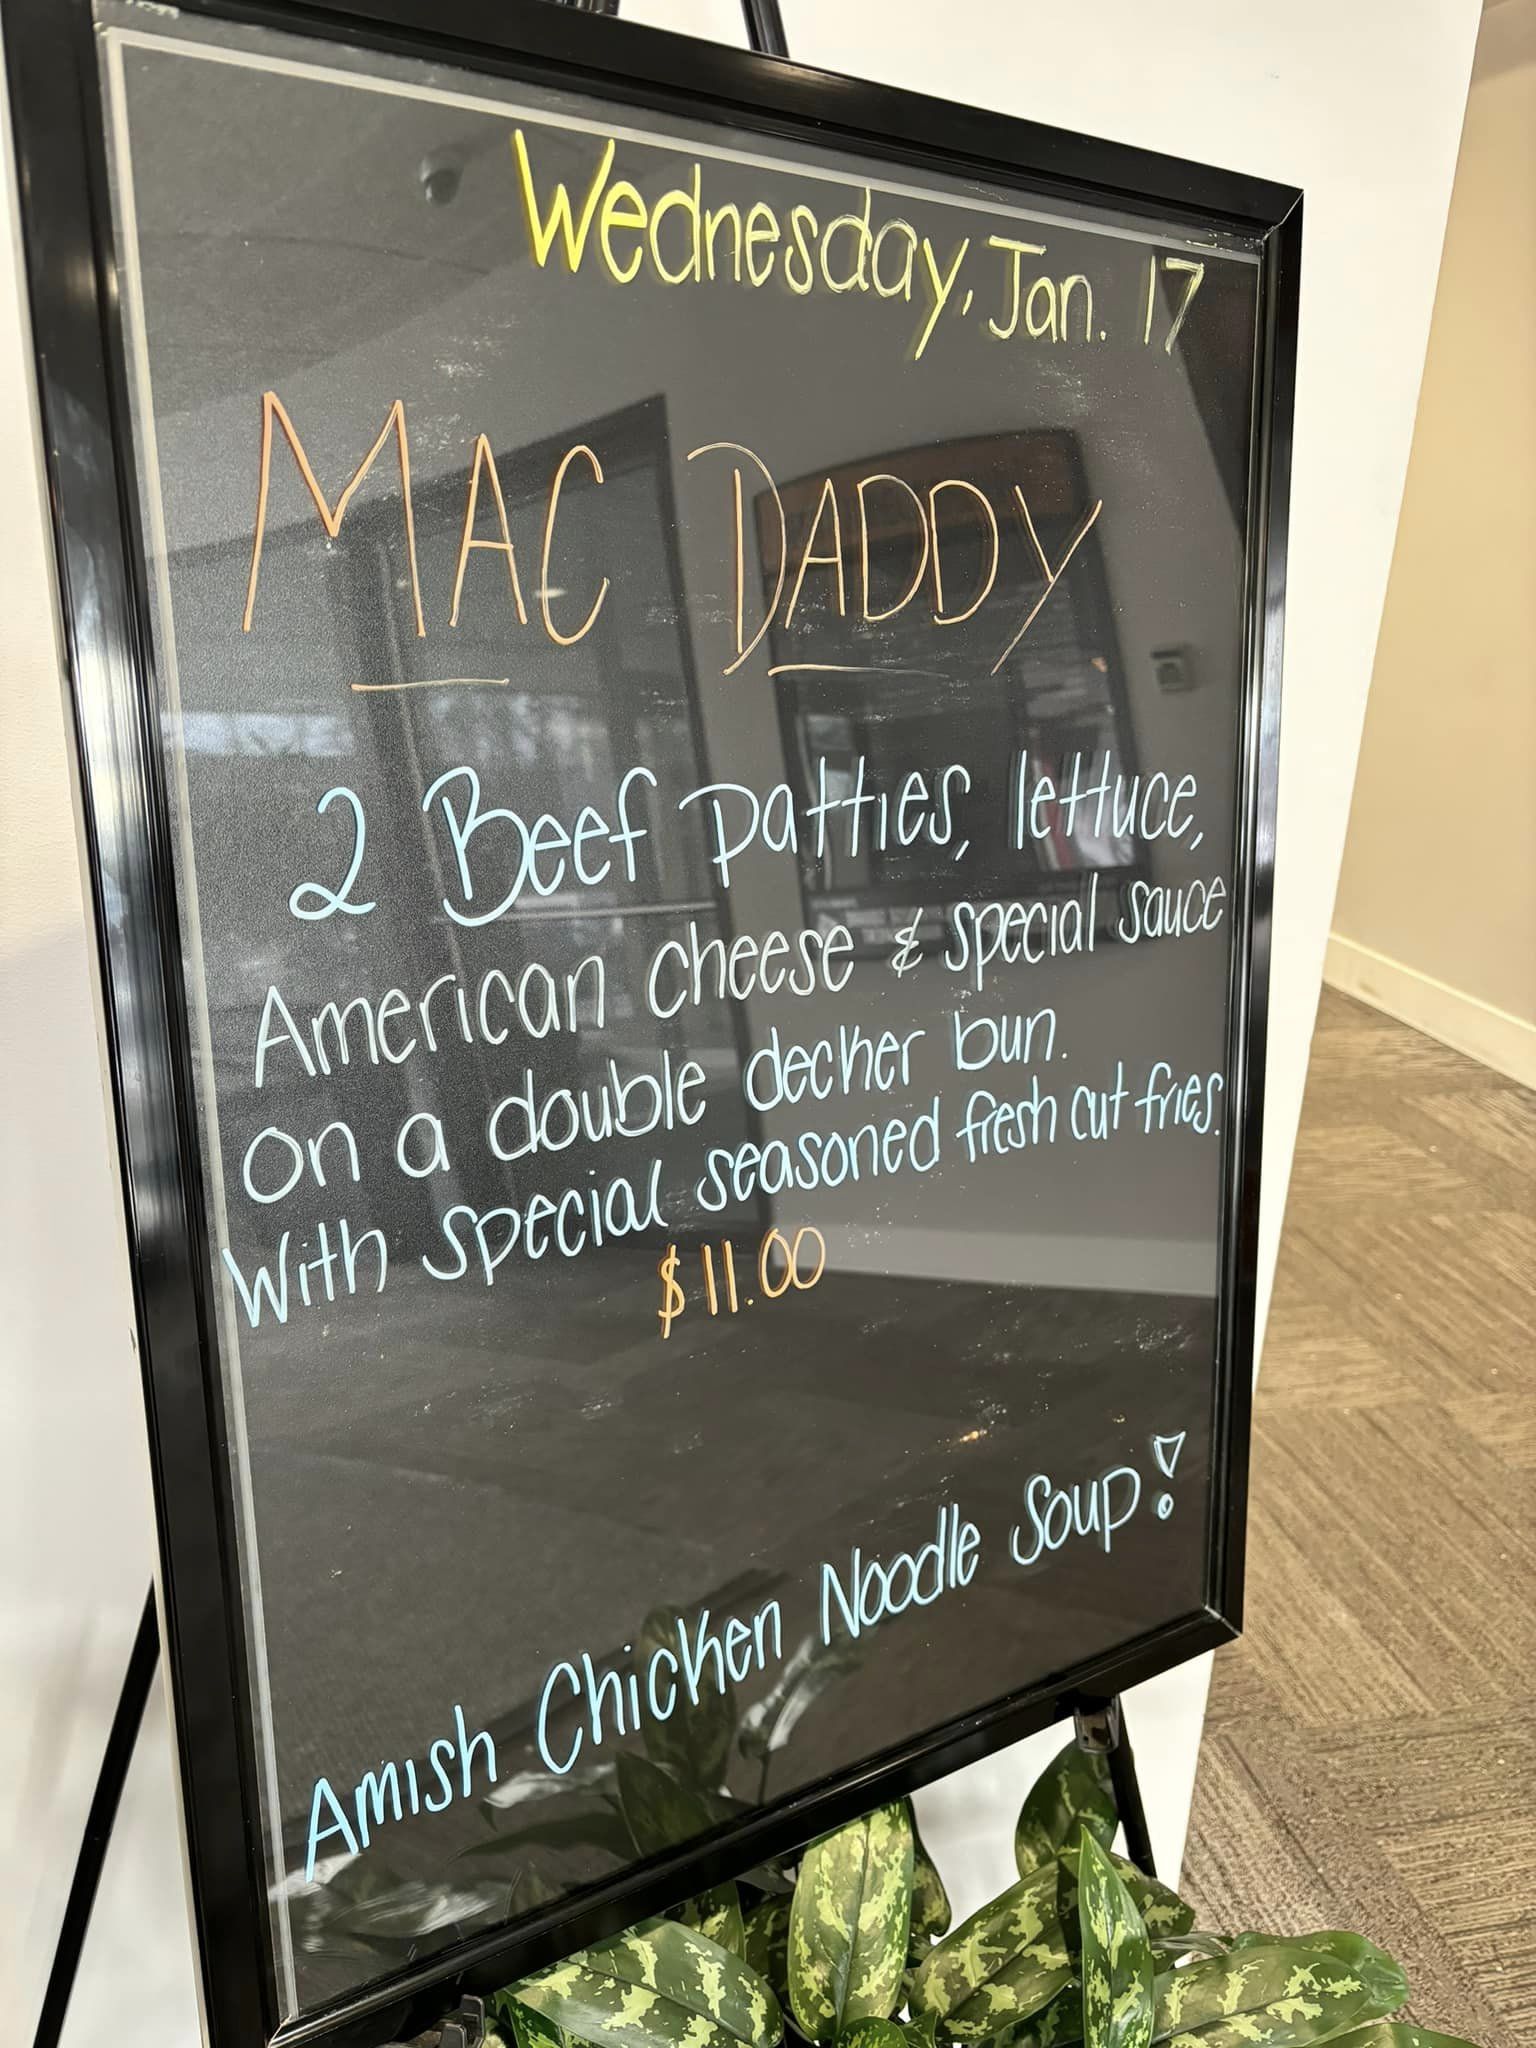 Wednesday, Jan. 17
MAC DADDY
2 Beef Patties, lettuce,
American cheese & special sauce
on a double decker bun.
With special seasoned fresh cut fries.
$11.00
Amish Chicken Noodle Soup!